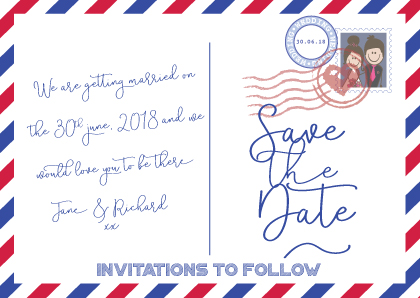 We are getting married on
the 30th june, 2018 and we
would love you to be there
Jane & Richard
xx
30.06.18
Save
the
Date
INVITATIONS TO FOLLOW